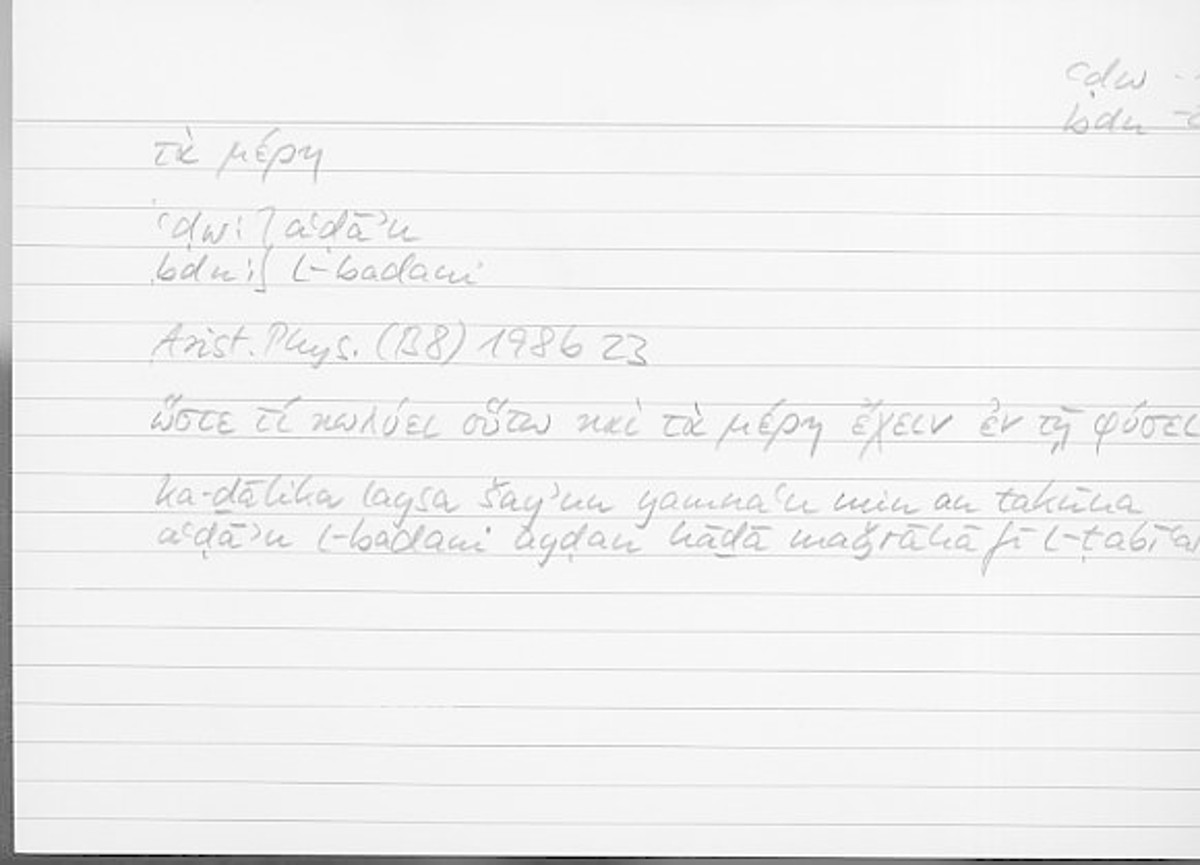 ʿḍw
bdn
τὰ μέρη
ʿḍw: ] aʿḍāʾu
bdn: ] l-badani
Arist. Phys. (B8) 198b 23
ὥστε τί κωλύει οὕτω καὶ τὰ μέρη ἔχειν ἐν τῇ φύσει
ka-ḏālika laysa šayʾun yamnaʿu min an takūna
aʿḍāʾu l-badani ayḍan hāḏā maǧrāhā fī l-ṭabīʿa